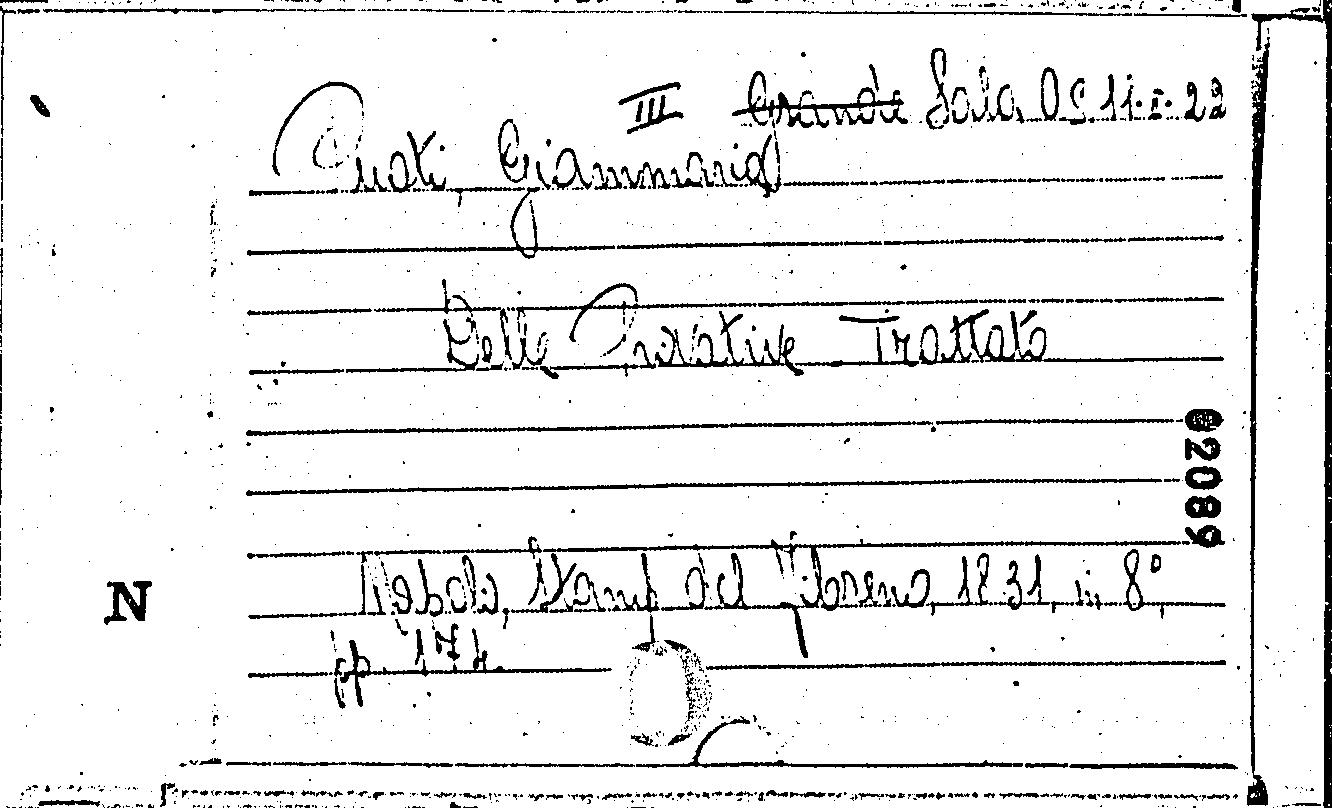 III Grande Sala OS. 11. I. 22
Puoti, Giammaria
Delle Privative Trattato
02089
Napoli, Stamp del Fibreno, 1831, in 8°,
N
pp. 174.